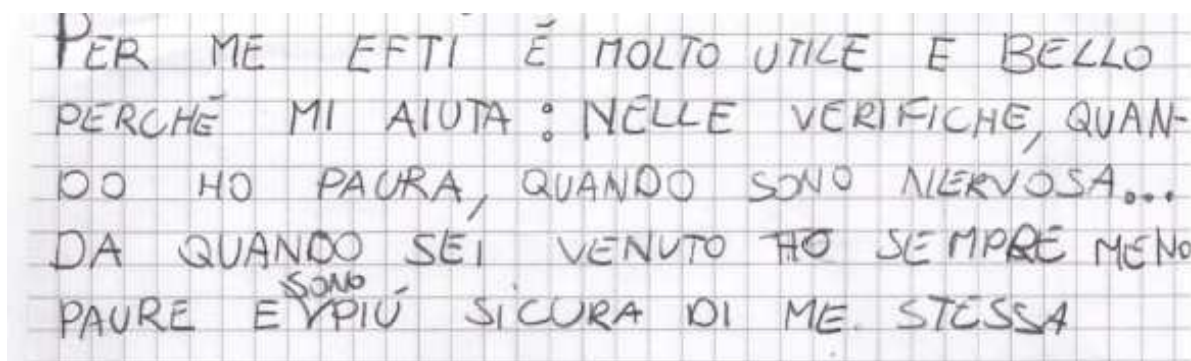 PER ME EFTI È MOLTO UTILE E BELLO
PERCHÉ MI AIUTA: NELLE VERIFICHE, QUAN-
DO HO PAURA, QUANDO SONO NERVOSA...
DA QUANDO SEI VENUTO HO SEMPRE MENO
PAURE E SONO PIÙ SICURA DI ME STESSA